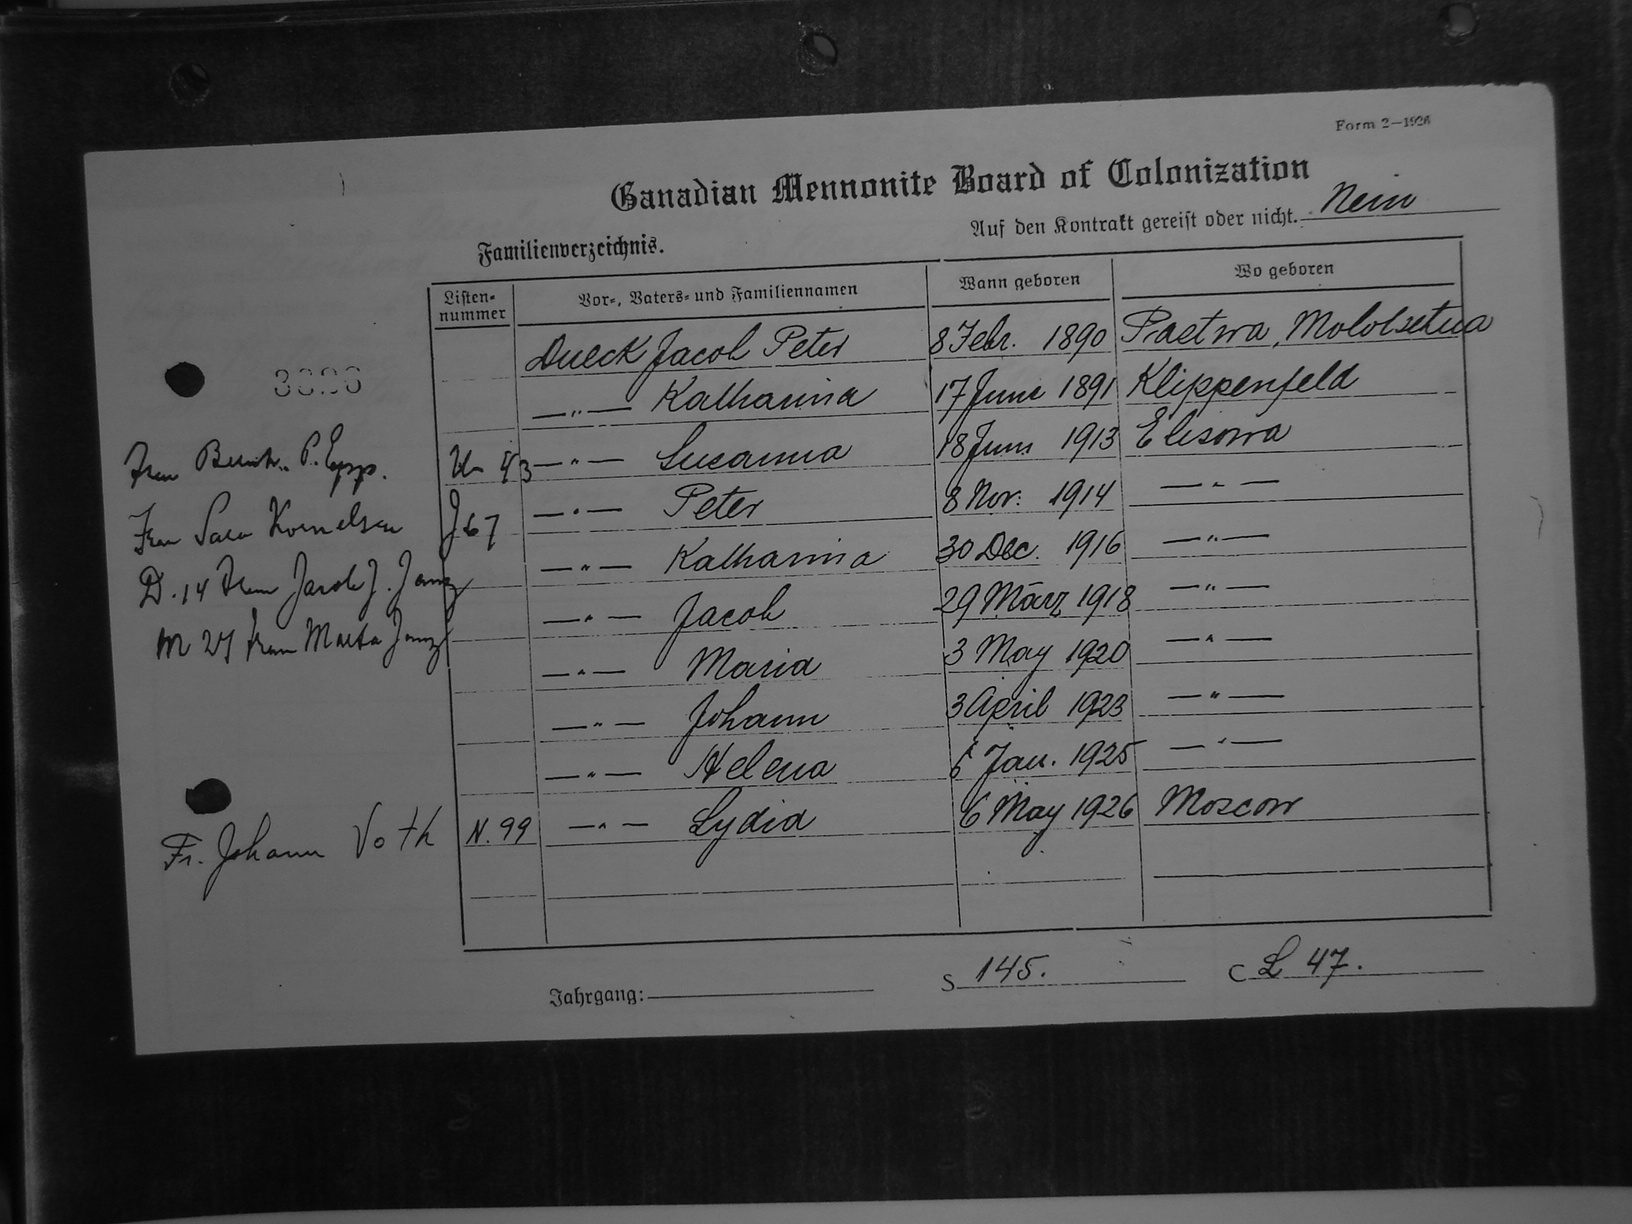 Form 2—1926
Canadian Mennonite Board of Colonization
Auf den Kontrakt gereist oder nicht. Nein
Familienverzeichnis.
Listen-nummer Vor-, Vaters- und Familiennamen Wann geboren Wo geboren
Dueck Jacob Peter 8 Febr. 1890
—"— Katharina 17 Juni 1891 Klippenfeld
Frau P. Epp. —"— Susanna 18 Juni 1913 Elisowa
Frau Sara Kornelsen J 67 —"— Peter 8 Nov. 1914 —"—
—"— Katharina 30 Dec. 1916 —"—
D. 14 Frau Jacob J. Janz —"— Jacob 29 März 1918 —"—
Frau Marta Janz —"— Maria 3 May 1920 —"—
—"— Johann 3 April 1923 —"—
—"— Helena 6 Jan. 1925 —"—
Fr. Johann Voth N. 99 —"— Lydia 6 May 1926 Moscow
Jahrgang: S 145. C L 47.